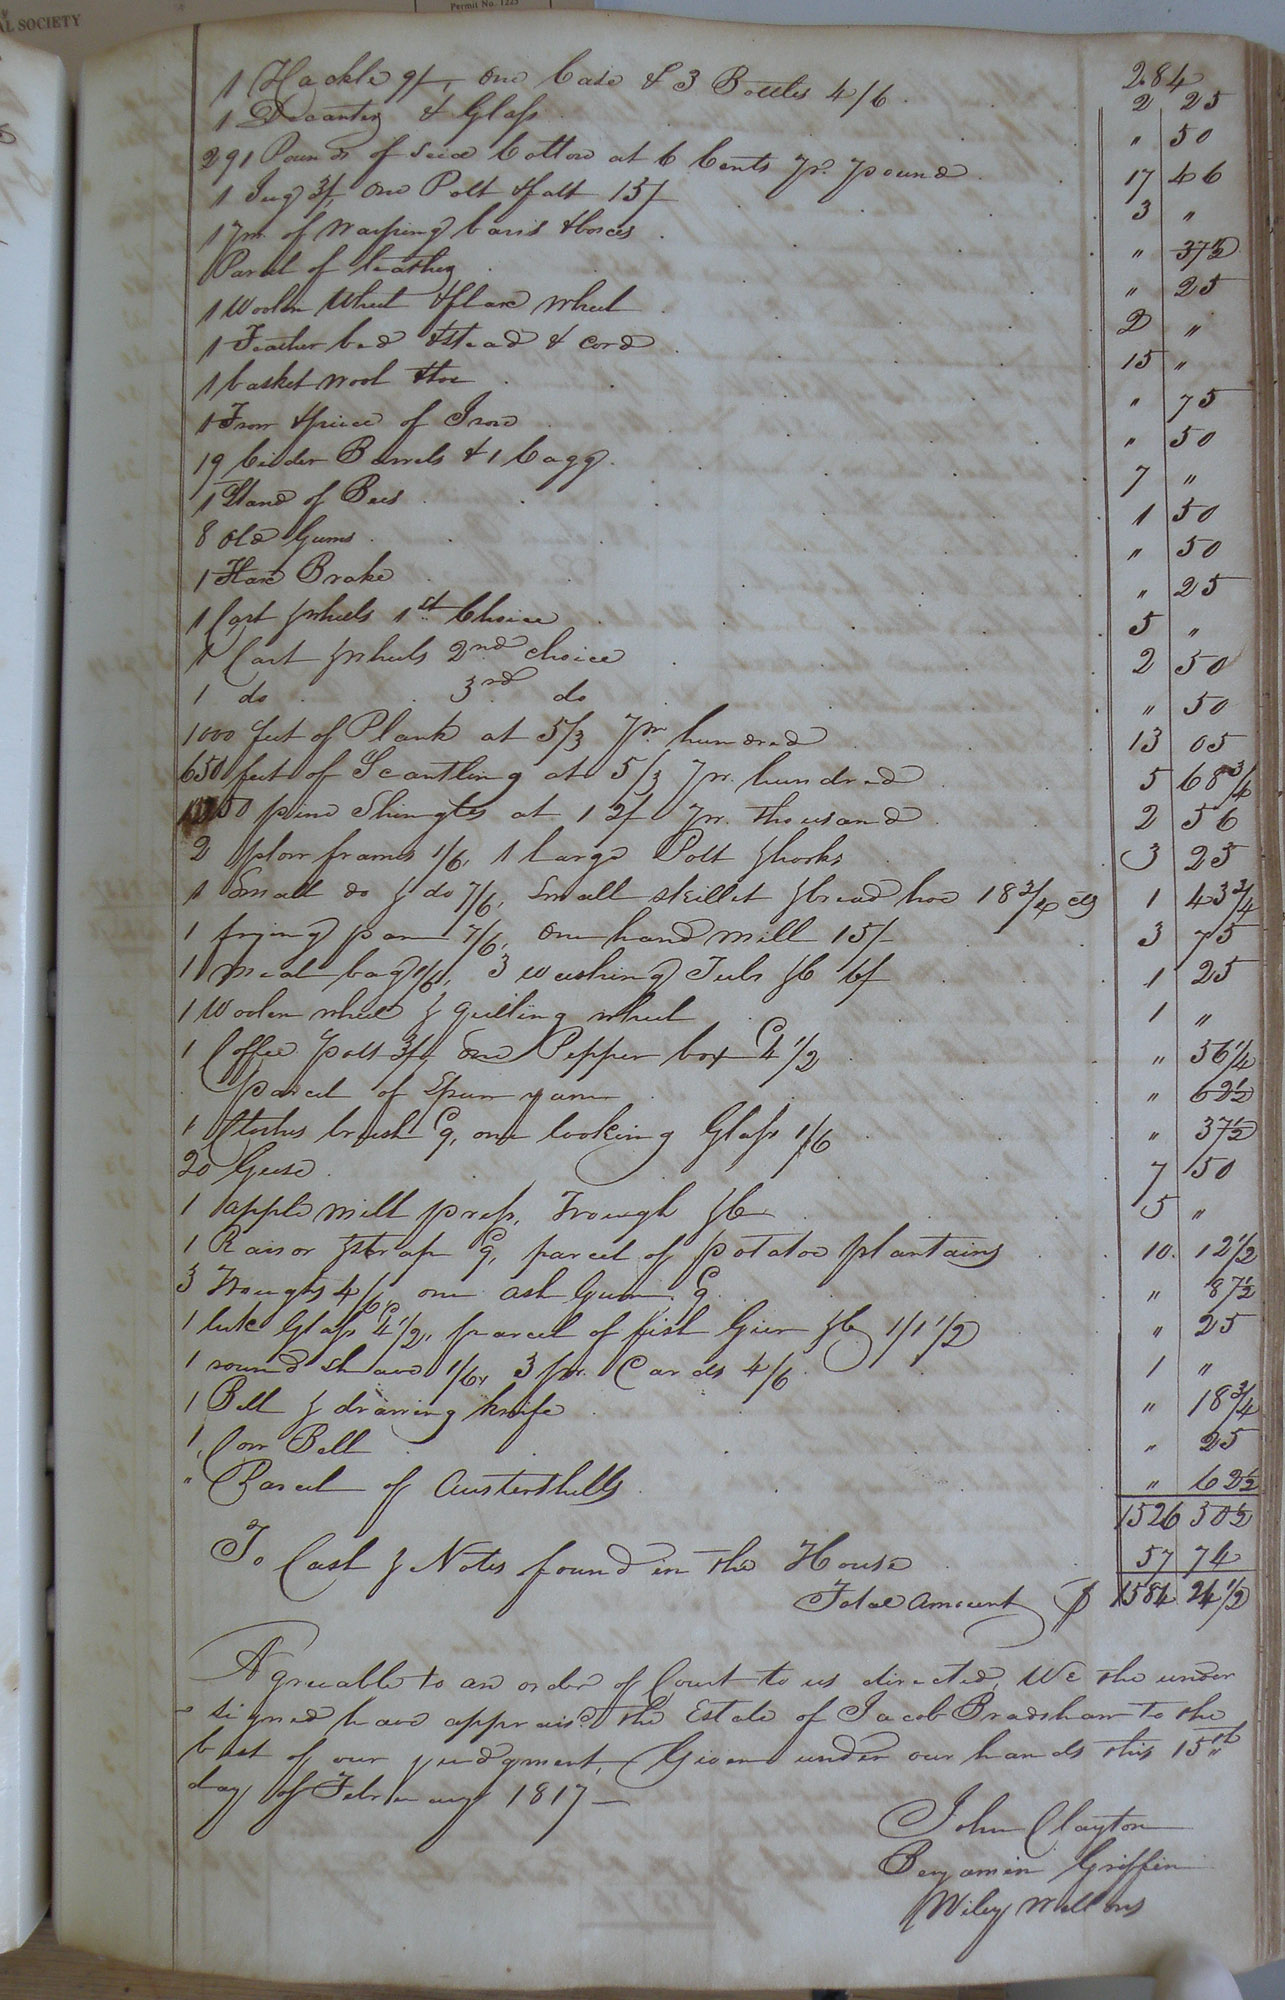 AL SOCIETY
Permit No. 1225
284
1 Hackle 9/, one Case & 3 Bottles 4/6 2 25
1 Decanter & Glass " 50
291 Pounds of seed Cotton at 6 Cents pr. pound 17 46
1 Jug 3/, one Pott & salt 15/ 3 "
1 pr. of Warping bars & boxes " 37½
Parcel of leather " 25
1 Woolen Wheel & flax wheel 2 "
1 Feather bed & stead & cord 15 "
1 basket wool & hoe " 75
1 Frow & piece of Iron " 50
19 Cider Barrels & 1 Cagg 7 "
1 Stand of Bees 1 50
8 old Gums " 50
1 Flax Brake " 25
1 Cart & wheels 1st Choice 5 "
1 Cart & wheels 2nd choice 2 50
1 do 3rd do " 50
1000 feet of Plank at 5/3 pr hundred 13 05
650 feet of Scantling at 5/3 pr. hundred 5 68¾
50 pine Shingles at 12/ pr. thousand 2 56
2 plow frames 1/6, 1 large Pott & hooks 3 25
1 Small do & do 7/6, Small skillet & bread hoe 18¾ cts 1 43¾
1 frying pan 7/6, one hand mill 15/ 3 75
1 meal bag 1/6, 3 washing Tubs &C 6/ 1 25
1 Woolen wheel & quilling wheel 1 "
1 Coffee pott 3/, one Pepper box 4½ " 56¼
parcel of Spun yarn " 62½
1 Clothes brush 9, one looking Glass 1/6 " 37½
20 Geese 7 50
1 apple mill press, Trough &C 5 "
1 Raisor & strap 9, parcel of potatoe plantains 10. 12½
3 Troughs 4/6, one ash Gum 9 " 87½
1 Glass 4½, parcel of fish Gier &C 1/1½ " 25
1 round shave 1/6, 3 pr. Cards 4/6 1 "
1 Bell & drawing knife " 18¾
1 Cow Bell " 25
" Parcel of Austershells " 62½
1526 50½
To Cash & Notes found in the House 57 74
Total Amount $ 1584 24½
Agreeable to an order of Court to us directed, We the under
- signed have apprais'd the Estate of Jacob Bradshaw to the
best of our judgment, Given under our hands this 15th
day of February 1817 —
John Clayton
Benjamin Griffin
Wiley Mellons